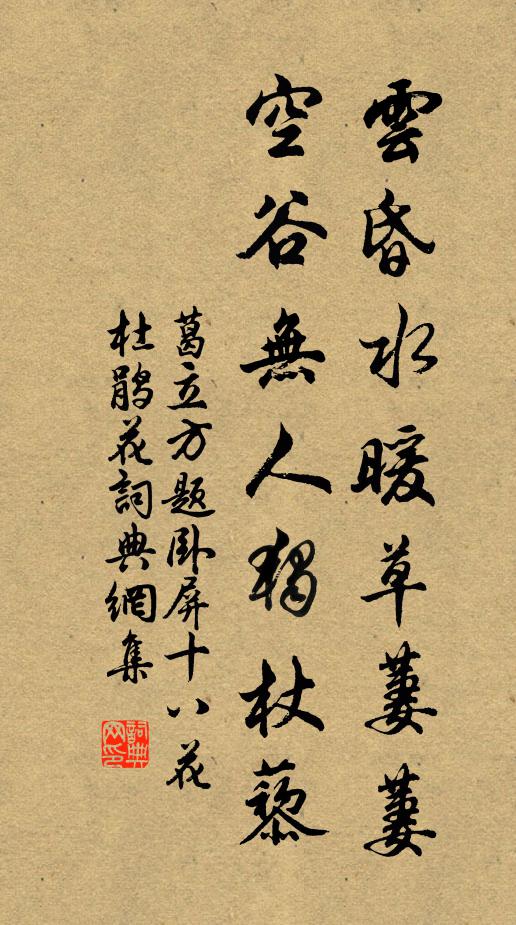 雲昏水暖草萋萋
空谷無人獨杖藜
葛立方题卧屏十八花
杜鹃花詞典網集
詞典网印